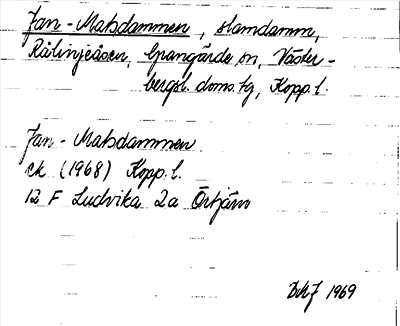 Jan-Matsdammen, stamdamm,
Rälinjeåsen, Grangärde sn, Väster-
bergsl. doms.tg, Kopp. l.
Jan-Matsdammen
ek (1968) Kopp. l.
12 F Ludvika 2a Örtjärn
1969